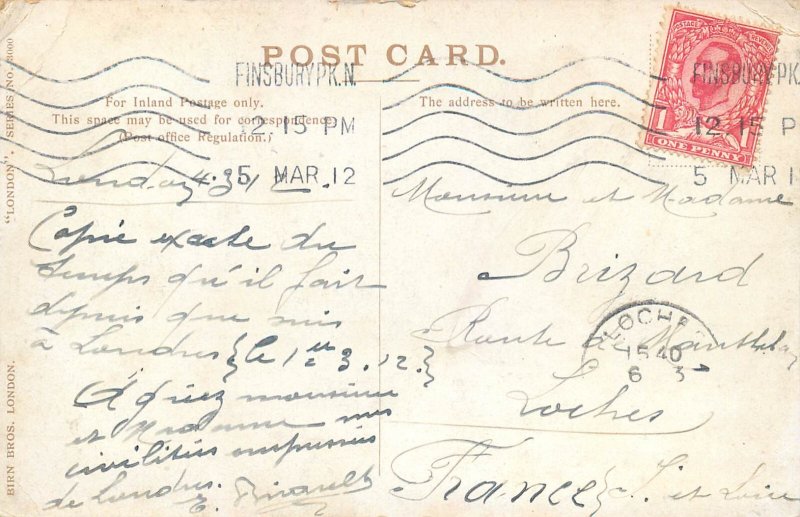 POST CARD.
FINSBURY PK. N.
12 15 PM
5 MAR 12
FINSBURY PK.
12 15 P
5 MAR 1
1
ONE PENNY
For Inland Postage only.
This space may be used for correspondence.
(Post office Regulation.)
The address to be written here.
"LONDON", SERIES NO.
BIRN BROS. LONDON.
London 4.3.12
Copie exacte du
temps qu'il fait
depuis que suis
à Londres (le 1er 3. 12.)
Agréez monsieur
et Madame mes
civilités empressées
de Londres. E.
Monsieur et Madame
Brizard
Route de
Loches
France (I. et Loire
LOCHES
15 40
6 3